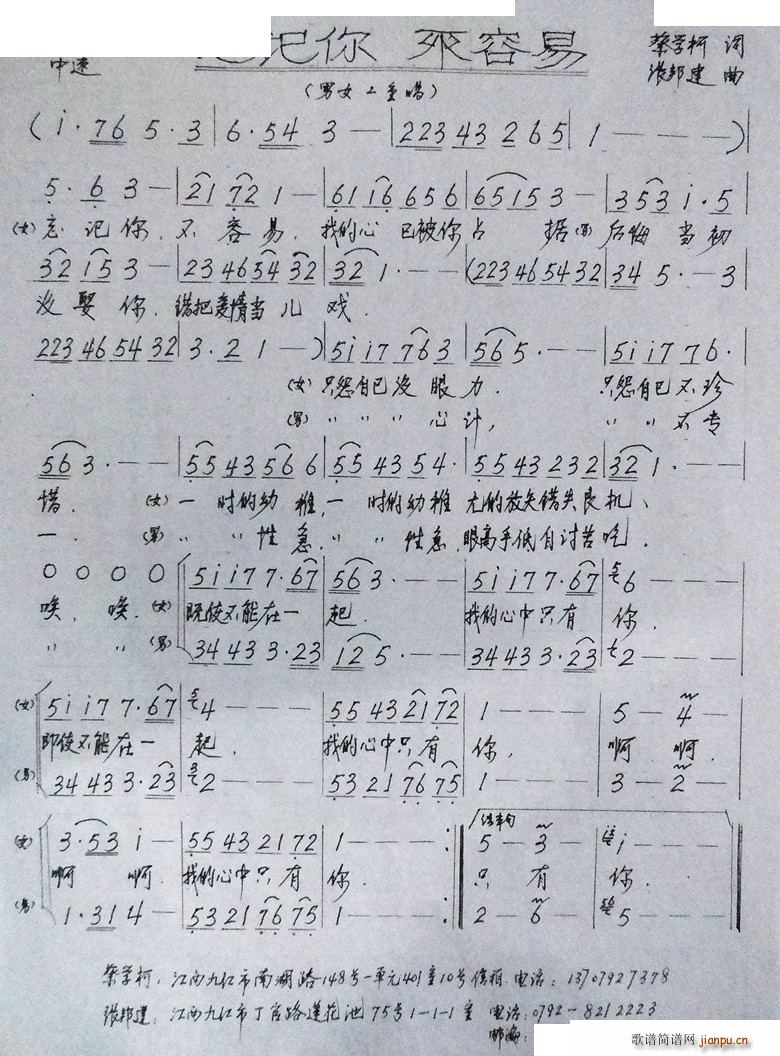 记你 不容易
蔡学柯 词
中速
张邦建 曲
(男女二重唱)
(i·76 5·3|6·54 3—|223 43 2 65|1———)|
5·6 3—|21 72 1—|61 i6 656|65 i53—|353 i·5
(女)忘记你,不容易,我的心已被你占据(男)后悔当初
32 i5 3—|23 46 54 32|32 1·——|(223 46 54 32|34 5·—3
没娶你,错把爱情当儿戏.
223 46 54 32|3·21—)|5i i7 763|56 5·——|5i i7 76·
(女)只怨自己没眼力.只怨自己不珍
(男)〃〃〃心计,〃〃不专
56 3·——|55 43 56 6|55 43 54·|55 43 232|32 1·——
惜.(女)一时的幼稚,一时的幼稚 尤的放矢错失良机、
一.(男)〃〃性急,〃〃性急,眼高手低自讨苦吃.
0 0 0 0|5i i7 7·67|56 3·——|5i i7 7·67|6———
唉,唉.(女)既使不能在一起.我的心中只有你,
〃〃(男)34 43 3·23|12 5·——|34 43 3·23|2———
(女)5i i7 7·67|4———|55 43 21 72|1———|5—4—
即使不能在一起.我的心中只有你,啊啊.
(男)34 43 3·23|2———|53 21 76 75|1———|3—2—
结束句
(女)3·53 i—|55 43 21 72|1———:‖5—3—|i———
啊啊.我的心中只有你.只有你.
(男)1·31 4—|53 21 76 75|1———:‖2—6—|5———
蔡学柯:江西九江市南湖路148号一单元401室10号信箱.电话:13707927378
张邦建:江西九江市丁官路莲花池75号1-1-1室 电话:0792-8212223
邮编:
歌谱简谱网
jianpu.cn